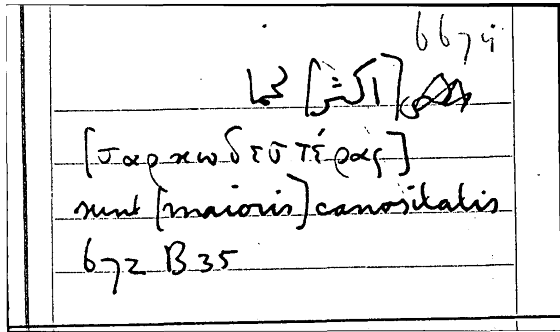 [اكثر] لحما
[σαρκωδεστέρας]
sunt [maioris] carnositatis
672 B 35